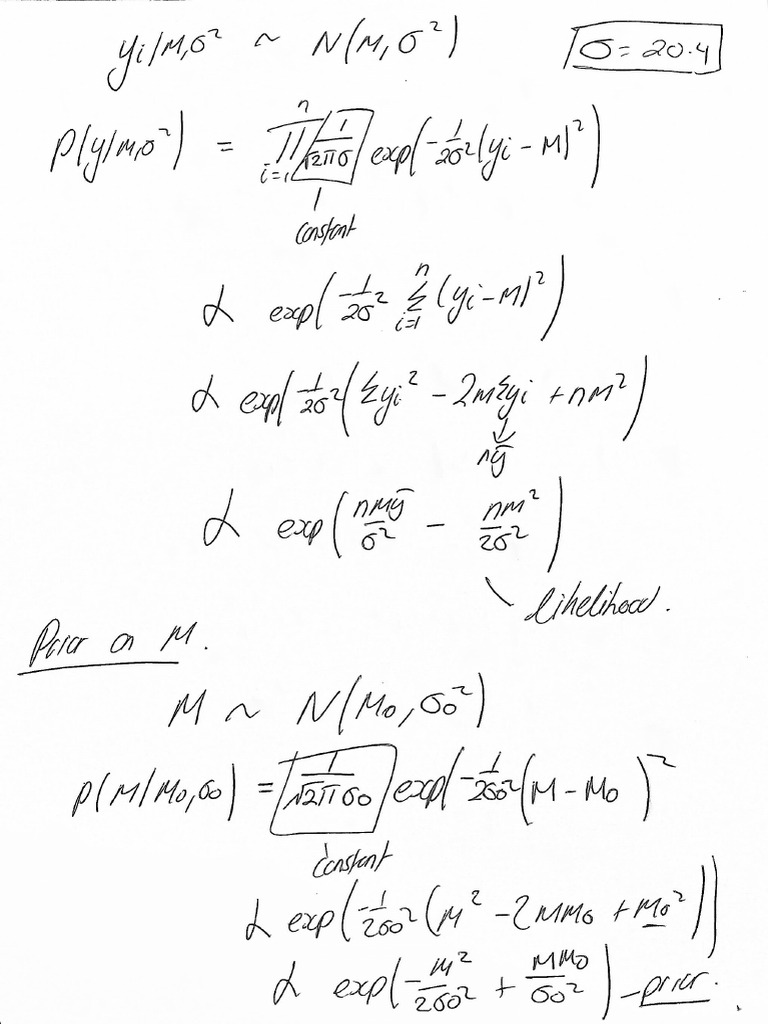 yi/M,σ² ~ N(M,σ²)   σ = 20.4
P(y/M,σ²) = ∏_{i=1}^{n} 1/√2πσ exp(-1/2σ² (yi - M)²)
constant
∝ exp(-1/2σ² Σ_{i=1}^{n} (yi - M)²)
∝ exp(-1/2σ² (Σyi² - 2MΣyi + nM²)
nȳ
∝ exp(nMȳ/σ² - nM²/2σ²)
likelihood.
Prior on M.
M ~ N(M₀, σ₀²)
P(M/M₀,σ₀) = 1/√2πσ₀ exp(-1/2σ₀² (M - M₀)²
constant
∝ exp(-1/2σ₀² (M² - 2MM₀ + M₀²))
∝ exp(-M²/2σ₀² + MM₀/σ₀²) - prior.